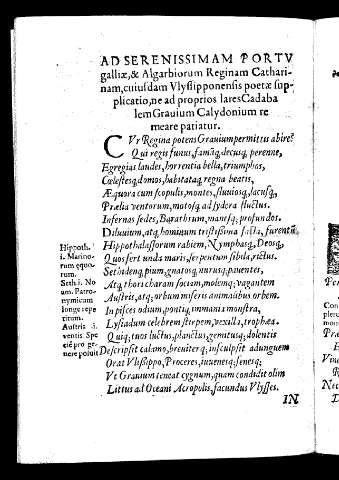 AD SERENISSIMAM PORTV
galliæ, & Algarbiorum Reginam Cathari-
nam, cuiusdam Vlyssipponensis poetæ sup-
plicatio, ne ad proprios lares Cadaba
lem Grauium Calydonium re
meare patiatur.
CVr Regina potens Grauium permittis abire?
Qui regis funus, famāq; decusq; perenne,
Egregias laudes, horrentia bella, triumphos,
Cœlestesq; domos, habitataq; regna beatis,
Æquora cum scopulis, montes, fluuiosq; lacusq;
Prælia ventorum, motosq; ad sydera fluctus.
Infernas sedes, Barathrum, manesq; profundos.
Diluuium, atq; hominum tristissima facta, furentū
Hippothalassorum rabiem, Nymphasq; Deosq;
Quos fert unda maris, serpentum sibila, rictus.
pium, gnatosq; nurusq; pauentes,
Atq; thori charam sociam, molemq; vagantem
Austris, atq; orbum miseris animalibus orbem.
In pisces odium, ponti; immania monstra,
Lysiadum celebrem stirpem, vexilla, trophæa.
Quiq; tuos luctus, planctus, gemitusq; dolentis
Descripsit calamo, breuiterq; insculpsit ad unguem
Orat Vlyssippo, Proceres, iuuenesq; senesq;
Vt Grauium teneat cygnum, quam condidit olim
Littus ad Oceani Acropolis, facundus Vlysses.
IN
Hippoth.
i. Marino-
rum equo-
rum.
Seth. i. No
am. Patro-
nymicum
longe repe
titum.
Austris .i.
ventis Spe
cie pro ge-
nere poluit